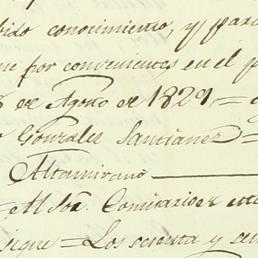 bido conocimiento, y para
ne por convenientes en el p
de Agosto de 1829, =
Gonzales Santianez =
Altamirano
= Al Sor. Comisario de este
sigue = Los sesenta y